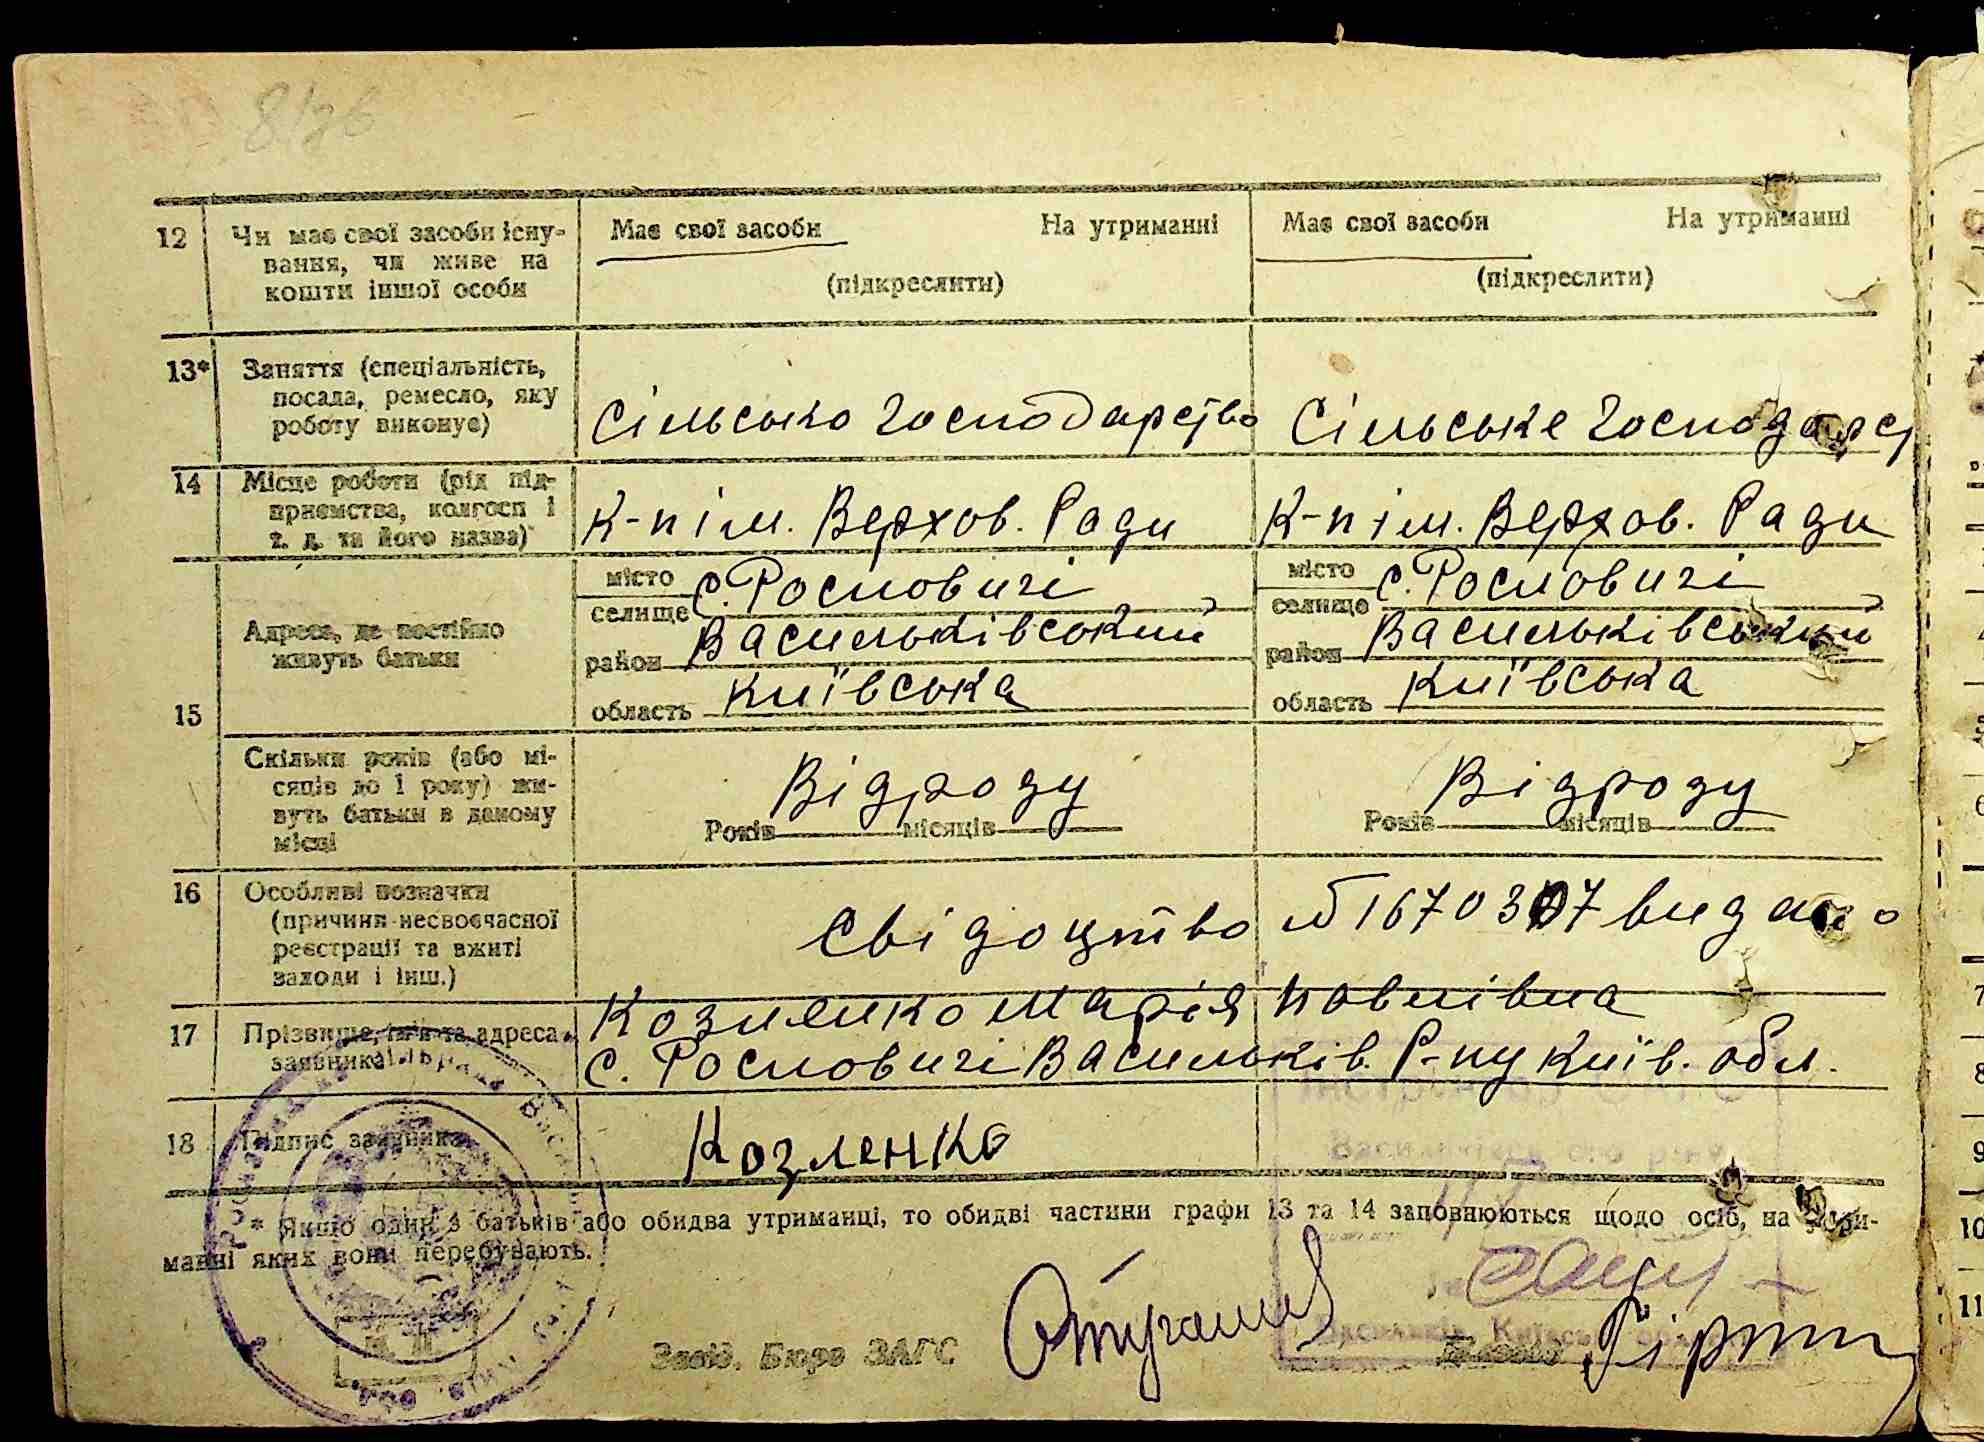 12 Чи має свої засоби існу-
вання, чи живе на
кошти іншої особи
Має свої засоби На утриманні
(підкреслити)
Має свої засоби На утриманні
(підкреслити)
13* Заняття (спеціальність,
посада, ремесло, яку
роботу виконує)
Сільсько господарство
Сільське господарст
14 Місце роботи (рід під-
приємства, колгосп і
т. д. та його назва)
К-п ім. Верхов. Ради
К-п ім. Верхов. Ради
15 Адреса, де постійно
живуть батьки
місто
селище с. Росповичі
район Васильківський
область Київська
місто
селище с. Росповичі
район Васильківський
область Київська
Скільки років (або мі-
сяців до 1 року) жи-
вуть батьки в даному
місці
Відроду
Років місяців
Відроду
Років місяців
16 Особливі позначки
(причини несвоєчасної
реєстрації та вжиті
заходи і інш.)
Свідоцтво № видано
17 Прізвище, ім'я та адреса
заявника
Козленко Марія Павлівна
с. Росповичі Васильків. Р-ну Київ. обл.
18 Підпис заявника
Козленко
* Якщо один з батьків або обидва утриманці, то обидві частини графи 13 та 14 заповнюються щодо осіб, на утри-
манні яких вони перебувають.
Завід. Бюро ЗАГС